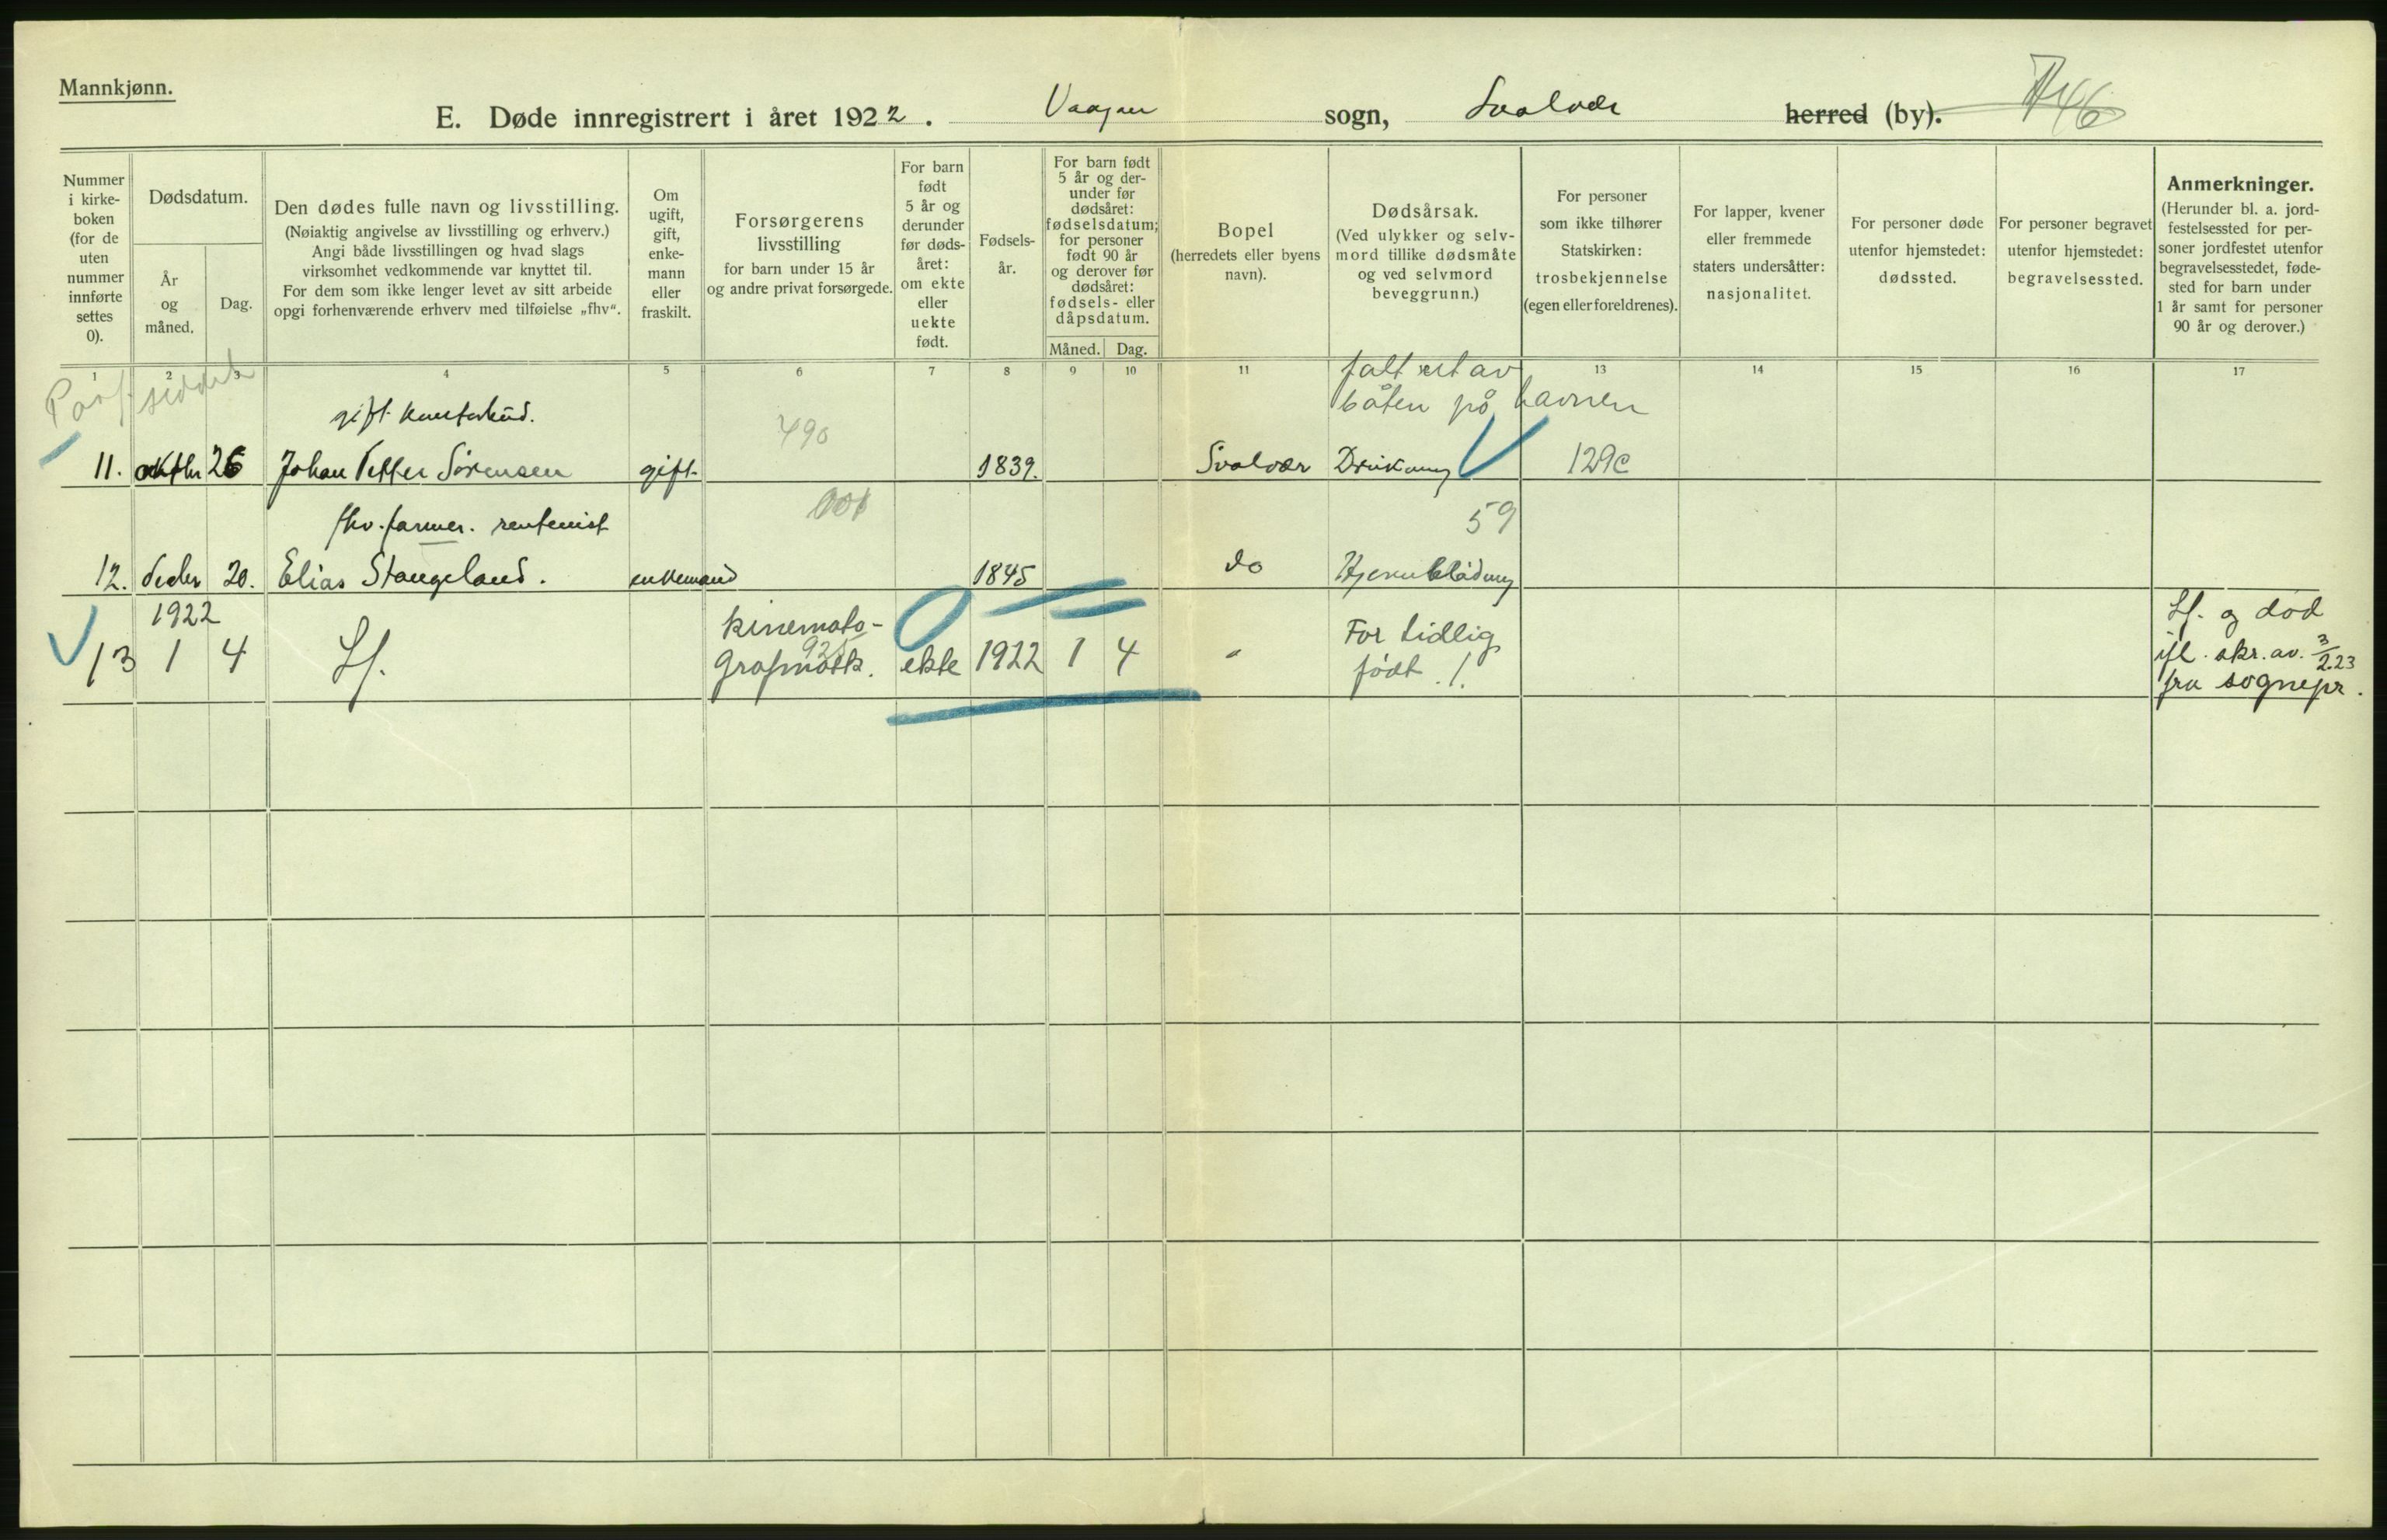 Mannkjønn.
E. Døde innregistrert i året 1922. Vaagan sogn, Svolvær herred (by).
Nummer
i kirke-
boken
(for de
uten
nummer
innførte
settes
0).
Dødsdatum.
År
og
måned.
Dag.
Den dødes fulle navn og livsstilling.
(Nøiaktig angivelse av livsstilling og erhverv.)
Angi både livsstillingen og hvad slags
virksomhet vedkommende var knyttet til.
For dem som ikke lenger levet av sitt arbeide
opgi forhenværende erhverv med tilføielse „fhv“.
Om
ugift,
gift,
enke-
mann
eller
fraskilt.
Forsørgerens
livsstilling
for barn under 15 år
og andre privat forsørgede.
For barn
født
5 år og
derunder
før døds-
året:
om ekte
eller
uekte
født.
Fødsels-
år.
For barn født
5 år og der-
under før
dødsåret:
fødselsdatum;
for personer
født 90 år
og derover før
dødsåret:
fødsels- eller
dåpsdatum.
Måned. Dag.
Bopel
(herredets eller byens
navn).
Dødsårsak.
(Ved ulykker og selv-
mord tillike dødsmåte
og ved selvmord
beveggrunn.)
For personer
som ikke tilhører
Statskirken:
trosbekjennelse
(egen eller foreldrenes).
For lapper, kvener
eller fremmede
staters undersåtter:
nasjonalitet.
For personer døde
utenfor hjemstedet:
dødssted.
For personer begravet
utenfor hjemstedet:
begravelsessted.
Anmerkninger.
(Herunder bl. a. jord-
festelsessted for per-
soner jordfestet utenfor
begravelsesstedet, føde-
sted for barn under
1 år samt for personer
90 år og derover.)
1 2 3 4 5 6 7 8 9 10 11 13 14 15 16 17
falt ut av
båten på havnen
gift
490
11. oktbr 26 Johan Petter Sørensen gift 1839. Svolvær Drukning 129c
001
fhv. farmer. rentenist
59
12. decbr 20. Elias Stangeland. enkemand 1845 do Hjerneblødning
1922
kinemato-
925
For tidlig
Lf. og død
13 1 4 Lf. ekte 1922 1 4 "
født.
ifl. skr. av. 3/2.23
fra sognepr.